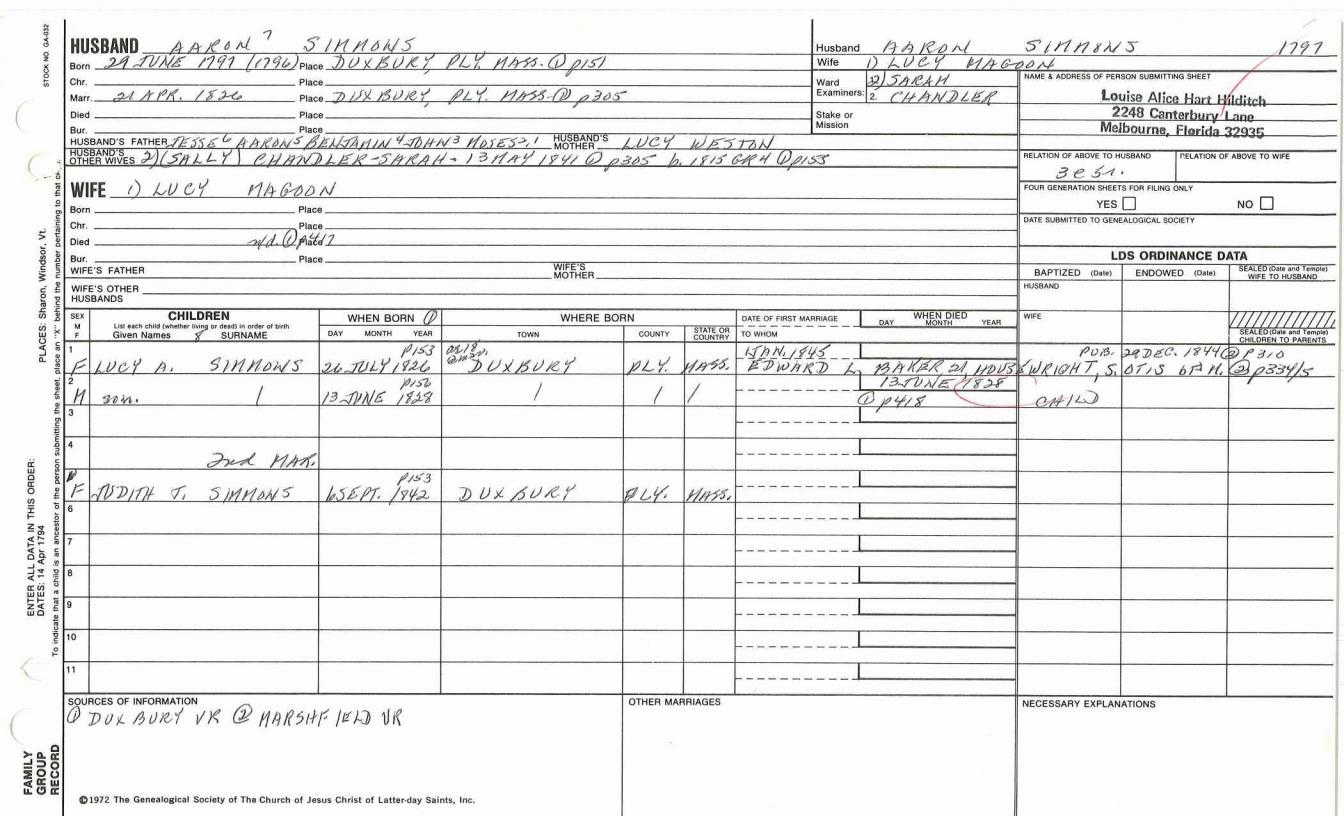 STOCK NO. GA-032
HUSBAND AARON 7 SIMMONS
Born 29 JUNE 1797 (1796) Place DUXBURY, PLY. MASS. ① p151
Chr. Place
Marr. 21 APR. 1826 Place DUXBURY, PLY. MASS. ① p305
Died Place
Bur. Place
HUSBAND'S FATHER JESSE6 AARON5 BENJAMIN4 JOHN3 MOSES2,1 HUSBAND'S MOTHER LUCY WESTON
HUSBAND'S OTHER WIVES 2) (SALLY) CHANDLER-SARAH - 13 MAY 1841 ① p305 b. 1815 GRH ① p153
Husband AARON SIMMONS 1797
Wife 1) LUCY MAGOON
Ward 2) SARAH
Examiners: 2. CHANDLER
Stake or Mission
NAME & ADDRESS OF PERSON SUBMITTING SHEET
Louise Alice Hart Hilditch
2248 Canterbury Lane
Melbourne, Florida 32935
RELATION OF ABOVE TO HUSBAND RELATION OF ABOVE TO WIFE
3c 5r.
FOUR GENERATION SHEETS FOR FILING ONLY
YES NO
DATE SUBMITTED TO GENEALOGICAL SOCIETY
WIFE 1) LUCY MAGOON
Born Place
Chr. Place
Died n/d. ① p417 Place
Bur. Place
WIFE'S FATHER WIFE'S MOTHER
WIFE'S OTHER HUSBANDS
LDS ORDINANCE DATA
BAPTIZED (Date) ENDOWED (Date) SEALED (Date and Temple) WIFE TO HUSBAND
HUSBAND
WIFE
SEALED (Date and Temple) CHILDREN TO PARENTS
SEX M F CHILDREN WHEN BORN ① WHERE BORN DATE OF FIRST MARRIAGE WHEN DIED
List each child (whether living or dead) in order of birth
Given Names 8 SURNAME DAY MONTH YEAR TOWN COUNTY STATE OR COUNTRY TO WHOM DAY MONTH YEAR
1 p153 1 JAN. 1845 PUB. 29 DEC. 1844 ② p310
F LUCY A. SIMMONS 26 JULY 1826 DUXBURY PLY. MASS. EDWARD L. BAKER, 21, HOUSEWRIGHT, S. OTIS OF M. ② p334/5
2 p156 13 JUNE 1828
M son. / 13 JUNE 1828 / / / ① p418 CHILD
3
4
2nd MAR.
p153
F JUDITH T. SIMMONS 6 SEPT. 1842 DUXBURY PLY. MASS.
6
7
8
9
10
11
SOURCES OF INFORMATION OTHER MARRIAGES NECESSARY EXPLANATIONS
① DUXBURY VR ② MARSHFIELD VR
©1972 The Genealogical Society of The Church of Jesus Christ of Latter-day Saints, Inc.
PLACES: Sharon, Windsor, Vt.
ENTER ALL DATA IN THIS ORDER:
DATES: 14 Apr 1794
To indicate that a child is an ancestor of the person submitting the sheet, place an "X" behind the number pertaining to that
FAMILY GROUP RECORD